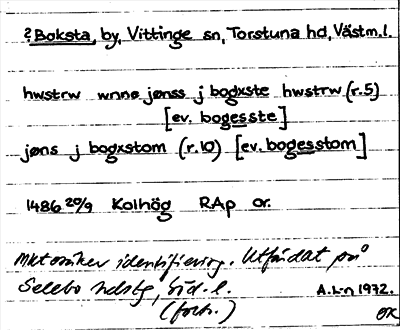 ?Boksta, by, Vittinge sn, Torstuna hd, Västm.l.
hwstrw wnne jønss j bogxste hwstrw (r.5)
[ev. bogesste]
jøns j bogxstom (r.10) [ev. bogesstom]
1486 20/9 Kolhög RAp or.
Mkt osäker identifiering. Utfärdat på
Selebo hdstg, Söd.l.
A.L-n 1972.
(forts.)